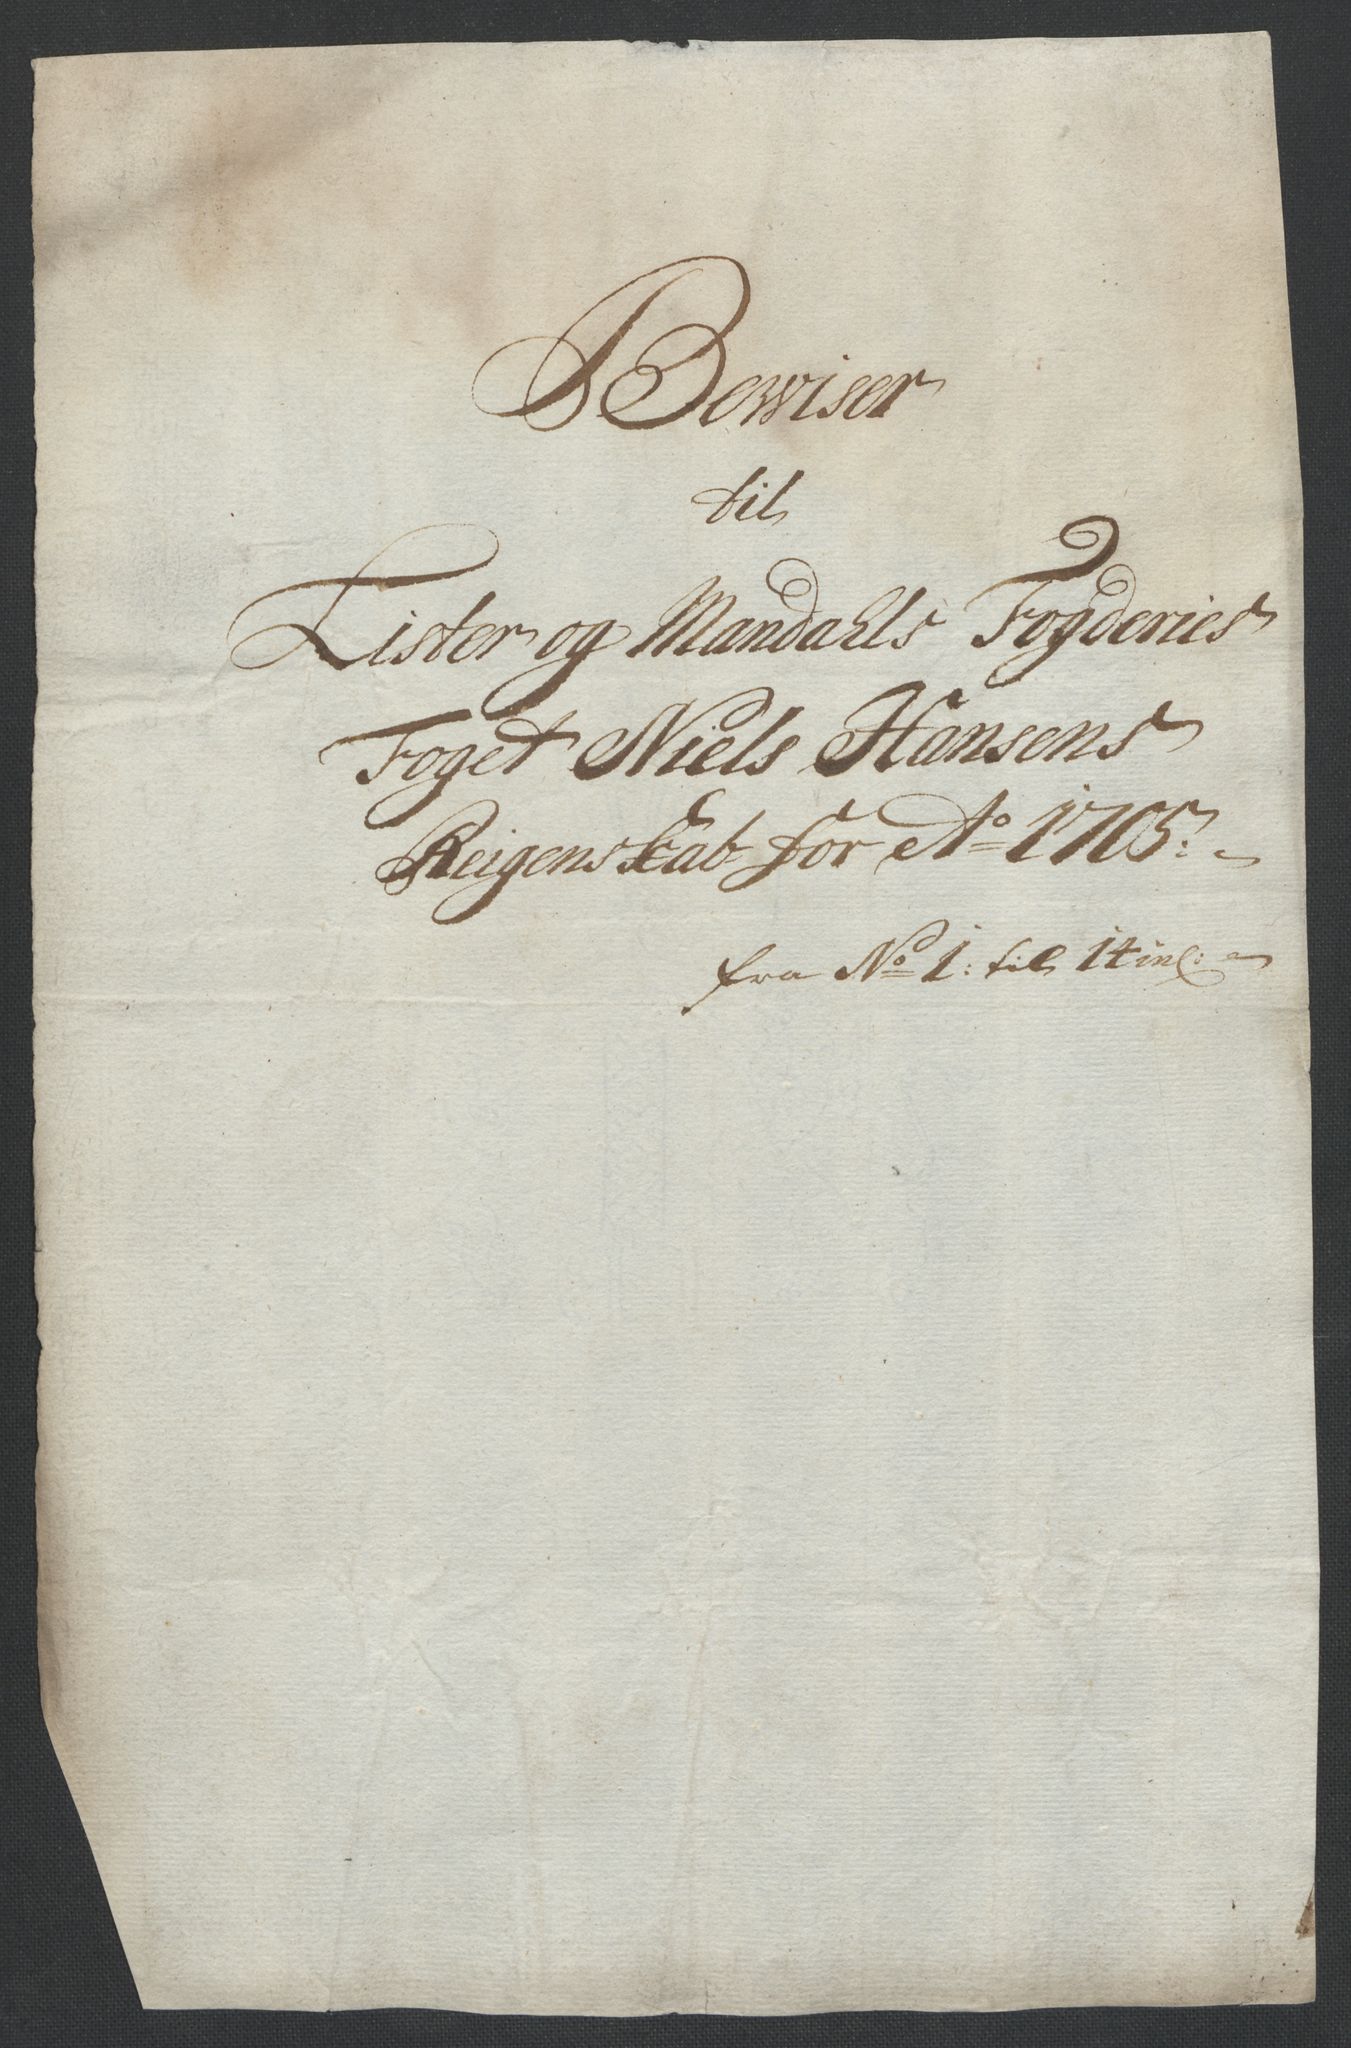 Bewiser
til
Lister og Mandahls Fogderies
Foget Niels Hansens
Reigenskab for Ao 1705:
fra No 1: til 14 incl: